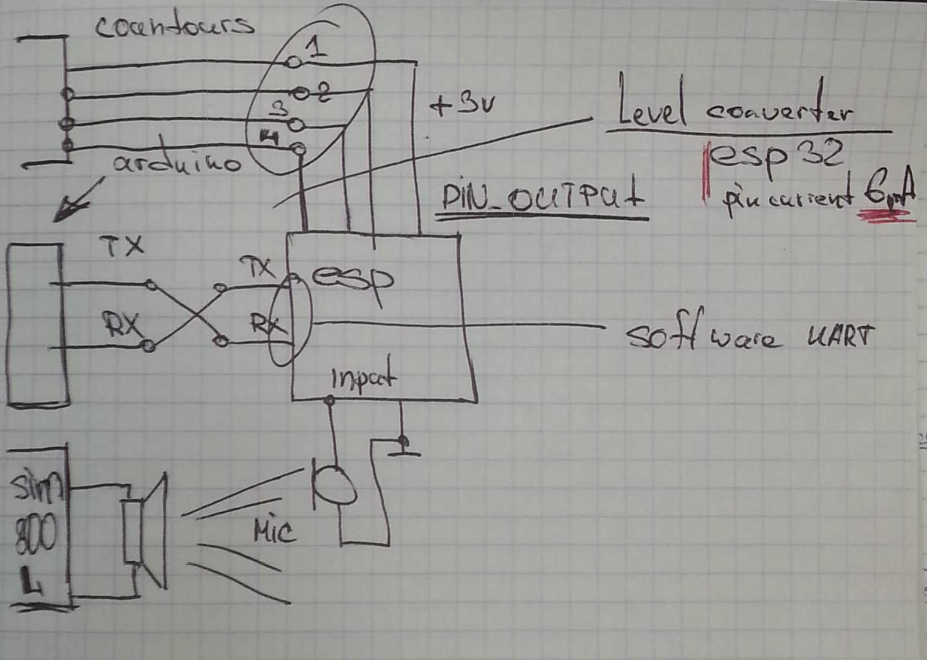 countours
1
2
3
4
+3v
Level converter
esp 32
pin current 6mA
PIN_OUTPUT
arduino
TX
TX
esp
RX
RX
software UART
input
sim
800
L
Mic